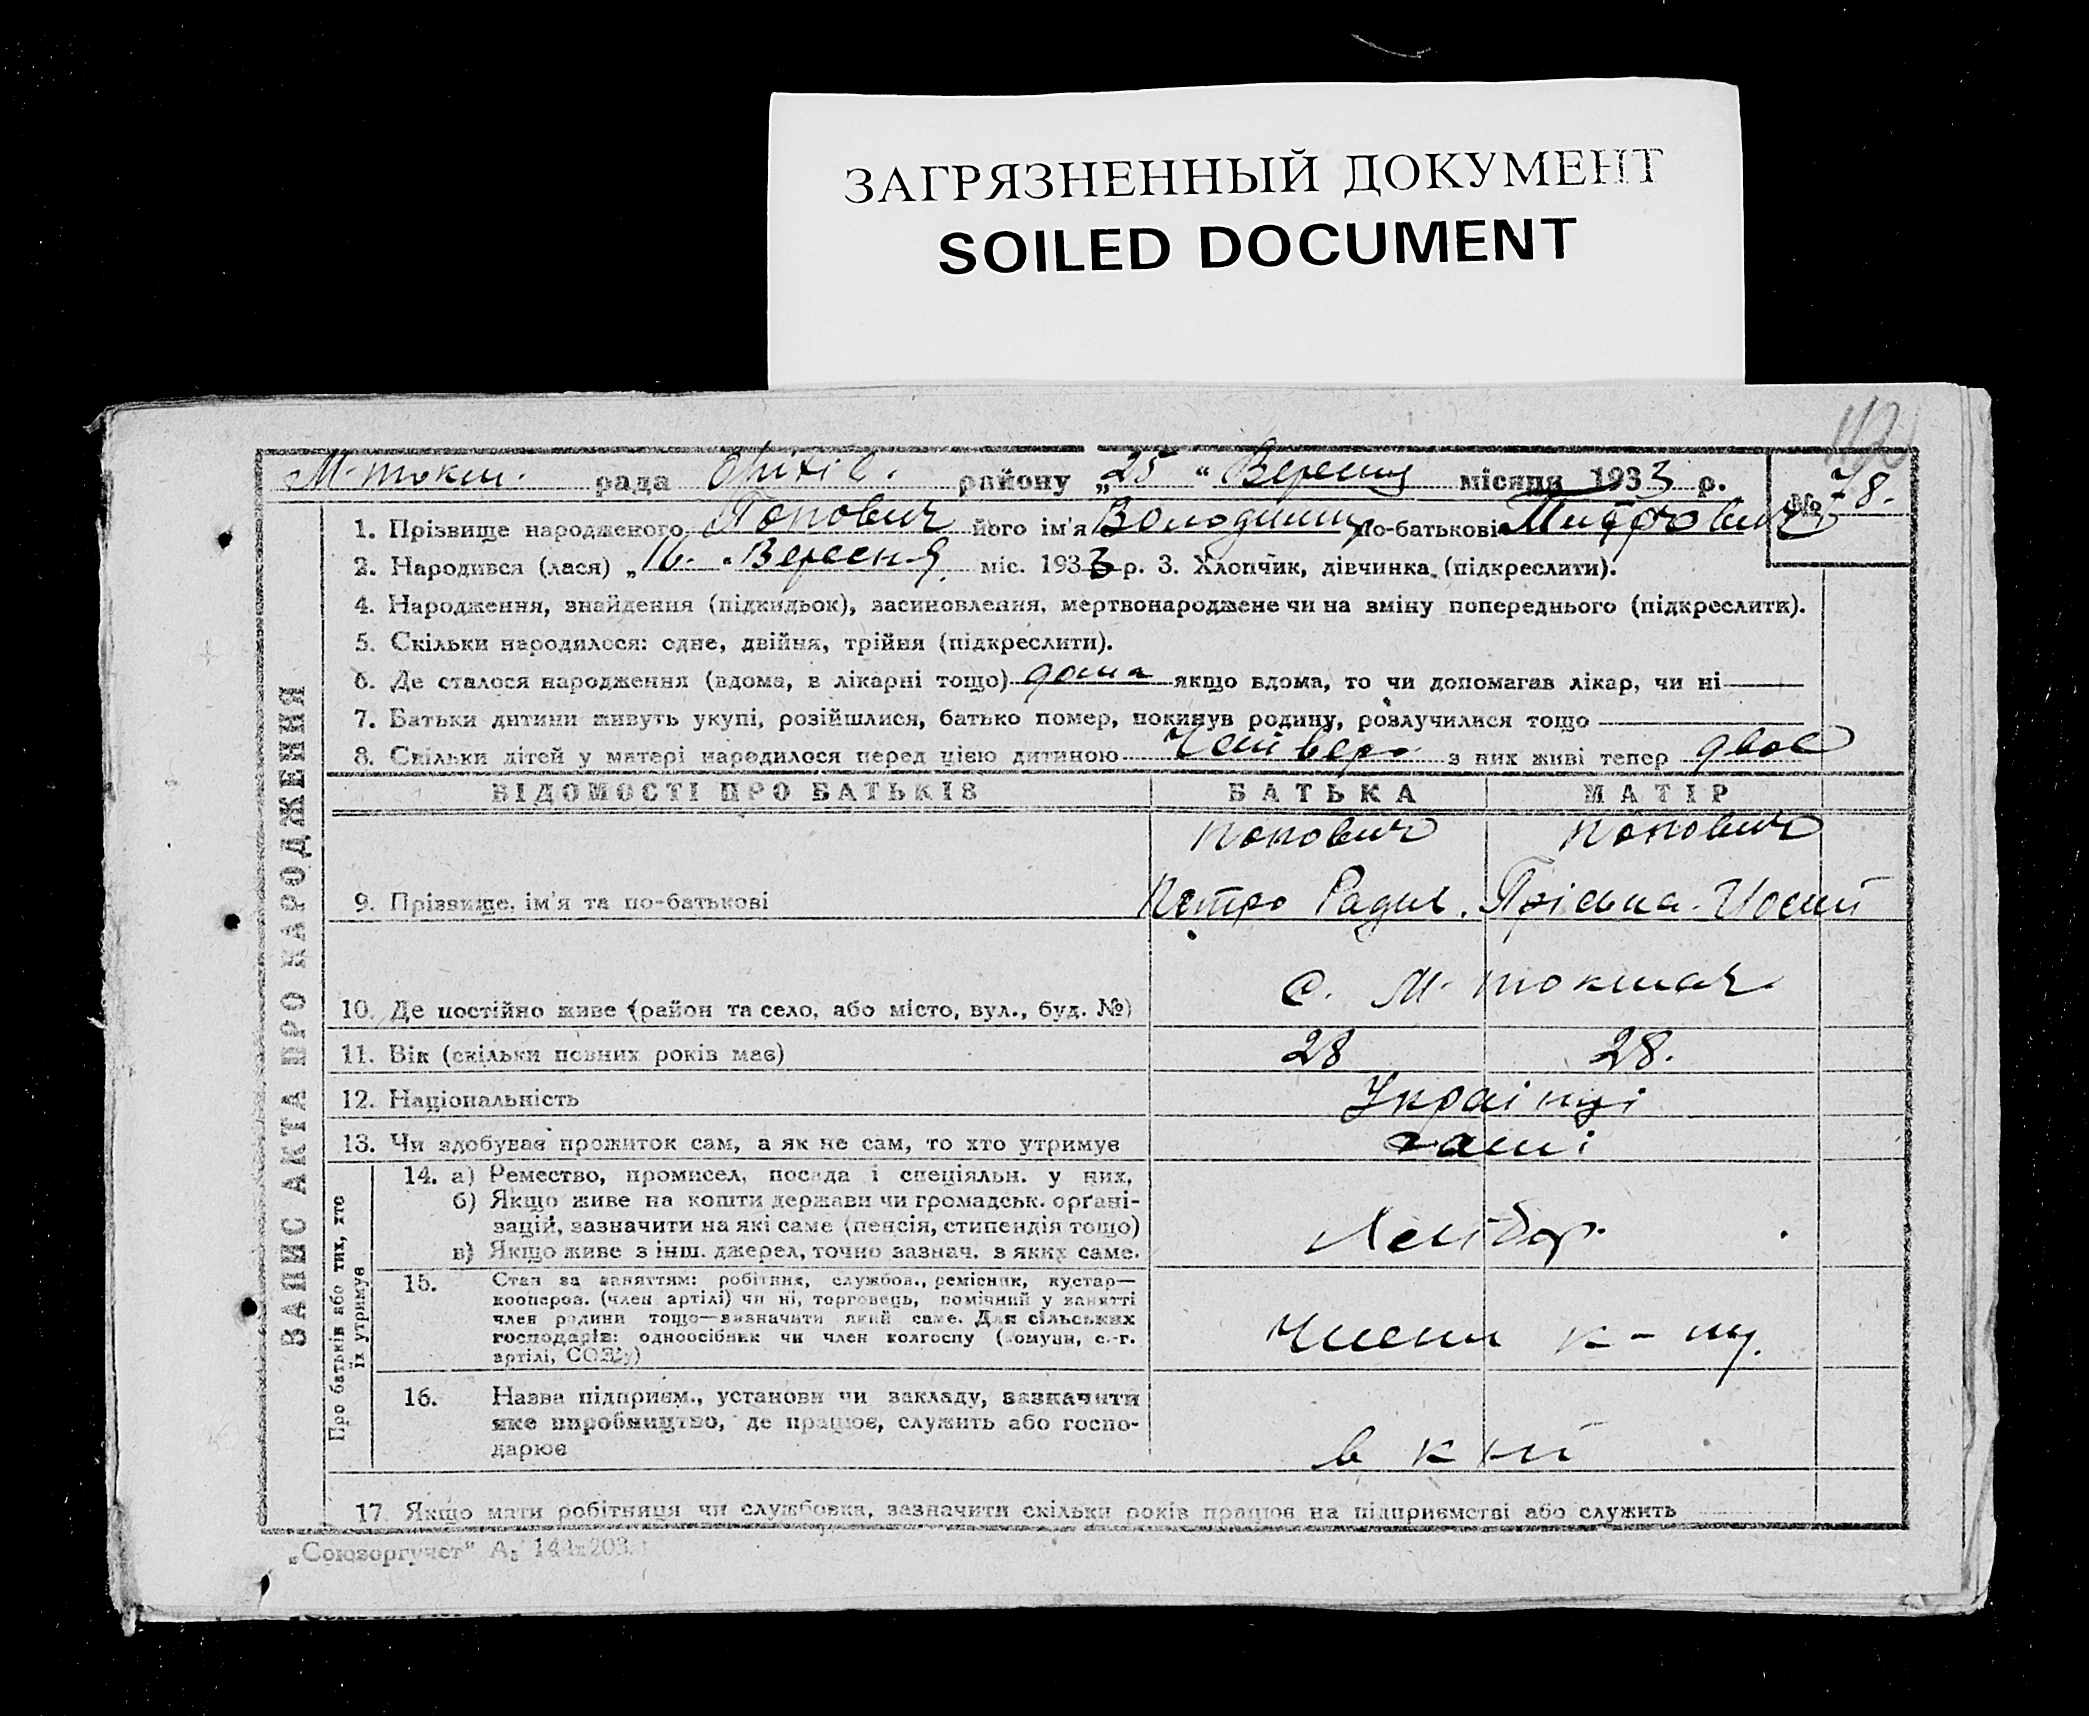 ЗАГРЯЗНЕННЫЙ ДОКУМЕНТ
SOILED DOCUMENT
М-токм. рада Оріхів. району „25“ Вересня місяця 1933 р.
№ 78.
1. Прізвище народженого Попович його ім'я Володимир по-батькові
2. Народився (лася) „16.“ Вересня міс. 1933 р. 3. Хлопчик, дівчинка (підкреслити).
4. Народження, знайдення (підкидьок), засиновлення, мертвонароджене чи на зміну попереднього (підкреслити).
5. Скільки народилося: одне, двійня, трійня (підкреслити).
6. Де сталося народження (вдома, в лікарні тощо) дома якщо вдома, то чи допомагав лікар, чи ні
7. Батьки дитини живуть укупі, розійшлися, батько помер, покинув родину, розлучилися тощо
8. Скільки дітей у матері народилося перед цією дитиною Четверо з них живі тепер двоє
ЗАПИС АКТА ПРО НАРОДЖЕННЯ
ВІДОМОСТІ ПРО БАТЬКІВ БАТЬКА МАТІР
Попович Попович
9. Прізвище, ім'я та по-батькові Петро
10. Де постійно живе (район та село, або місто, вул., буд. №) с. М-токмач
11. Вік (скільки повних років має) 28 28.
12. Національність Українці
13. Чи здобував прожиток сам, а як не сам, то хто утримує самі
Про батьків або тих, хто їх утримує
14. а) Ремество, промисел, посада і спеціяльн. у них,
б) Якщо живе на кошти держави чи громадськ. орґані-
зацій, зазначити на які саме (пенсія, стипендія тощо)
в) Якщо живе з інш. джерел, точно зазнач. з яких саме.
Хлібор.
15. Стан за заняттям: робітник, службов., ремісник, кустар—
коопероз. (член артілі) чи ні, торговець, помічний у занятті
член родини тощо—зазначити який саме. Для сільських
господарів: одноосібник чи член колгоспу (комуни, с.-г.
артілі, СОЗу)
Члени к-пу.
16. Назва підприєм., установи чи закладу, зазначити
яке виробництво, де працює, служить або госпо-
дарює
в к
17. Якщо мати робітниця чи службовка, зазначити скільки років працює на підприємстві або служить
„Союзоргучет“